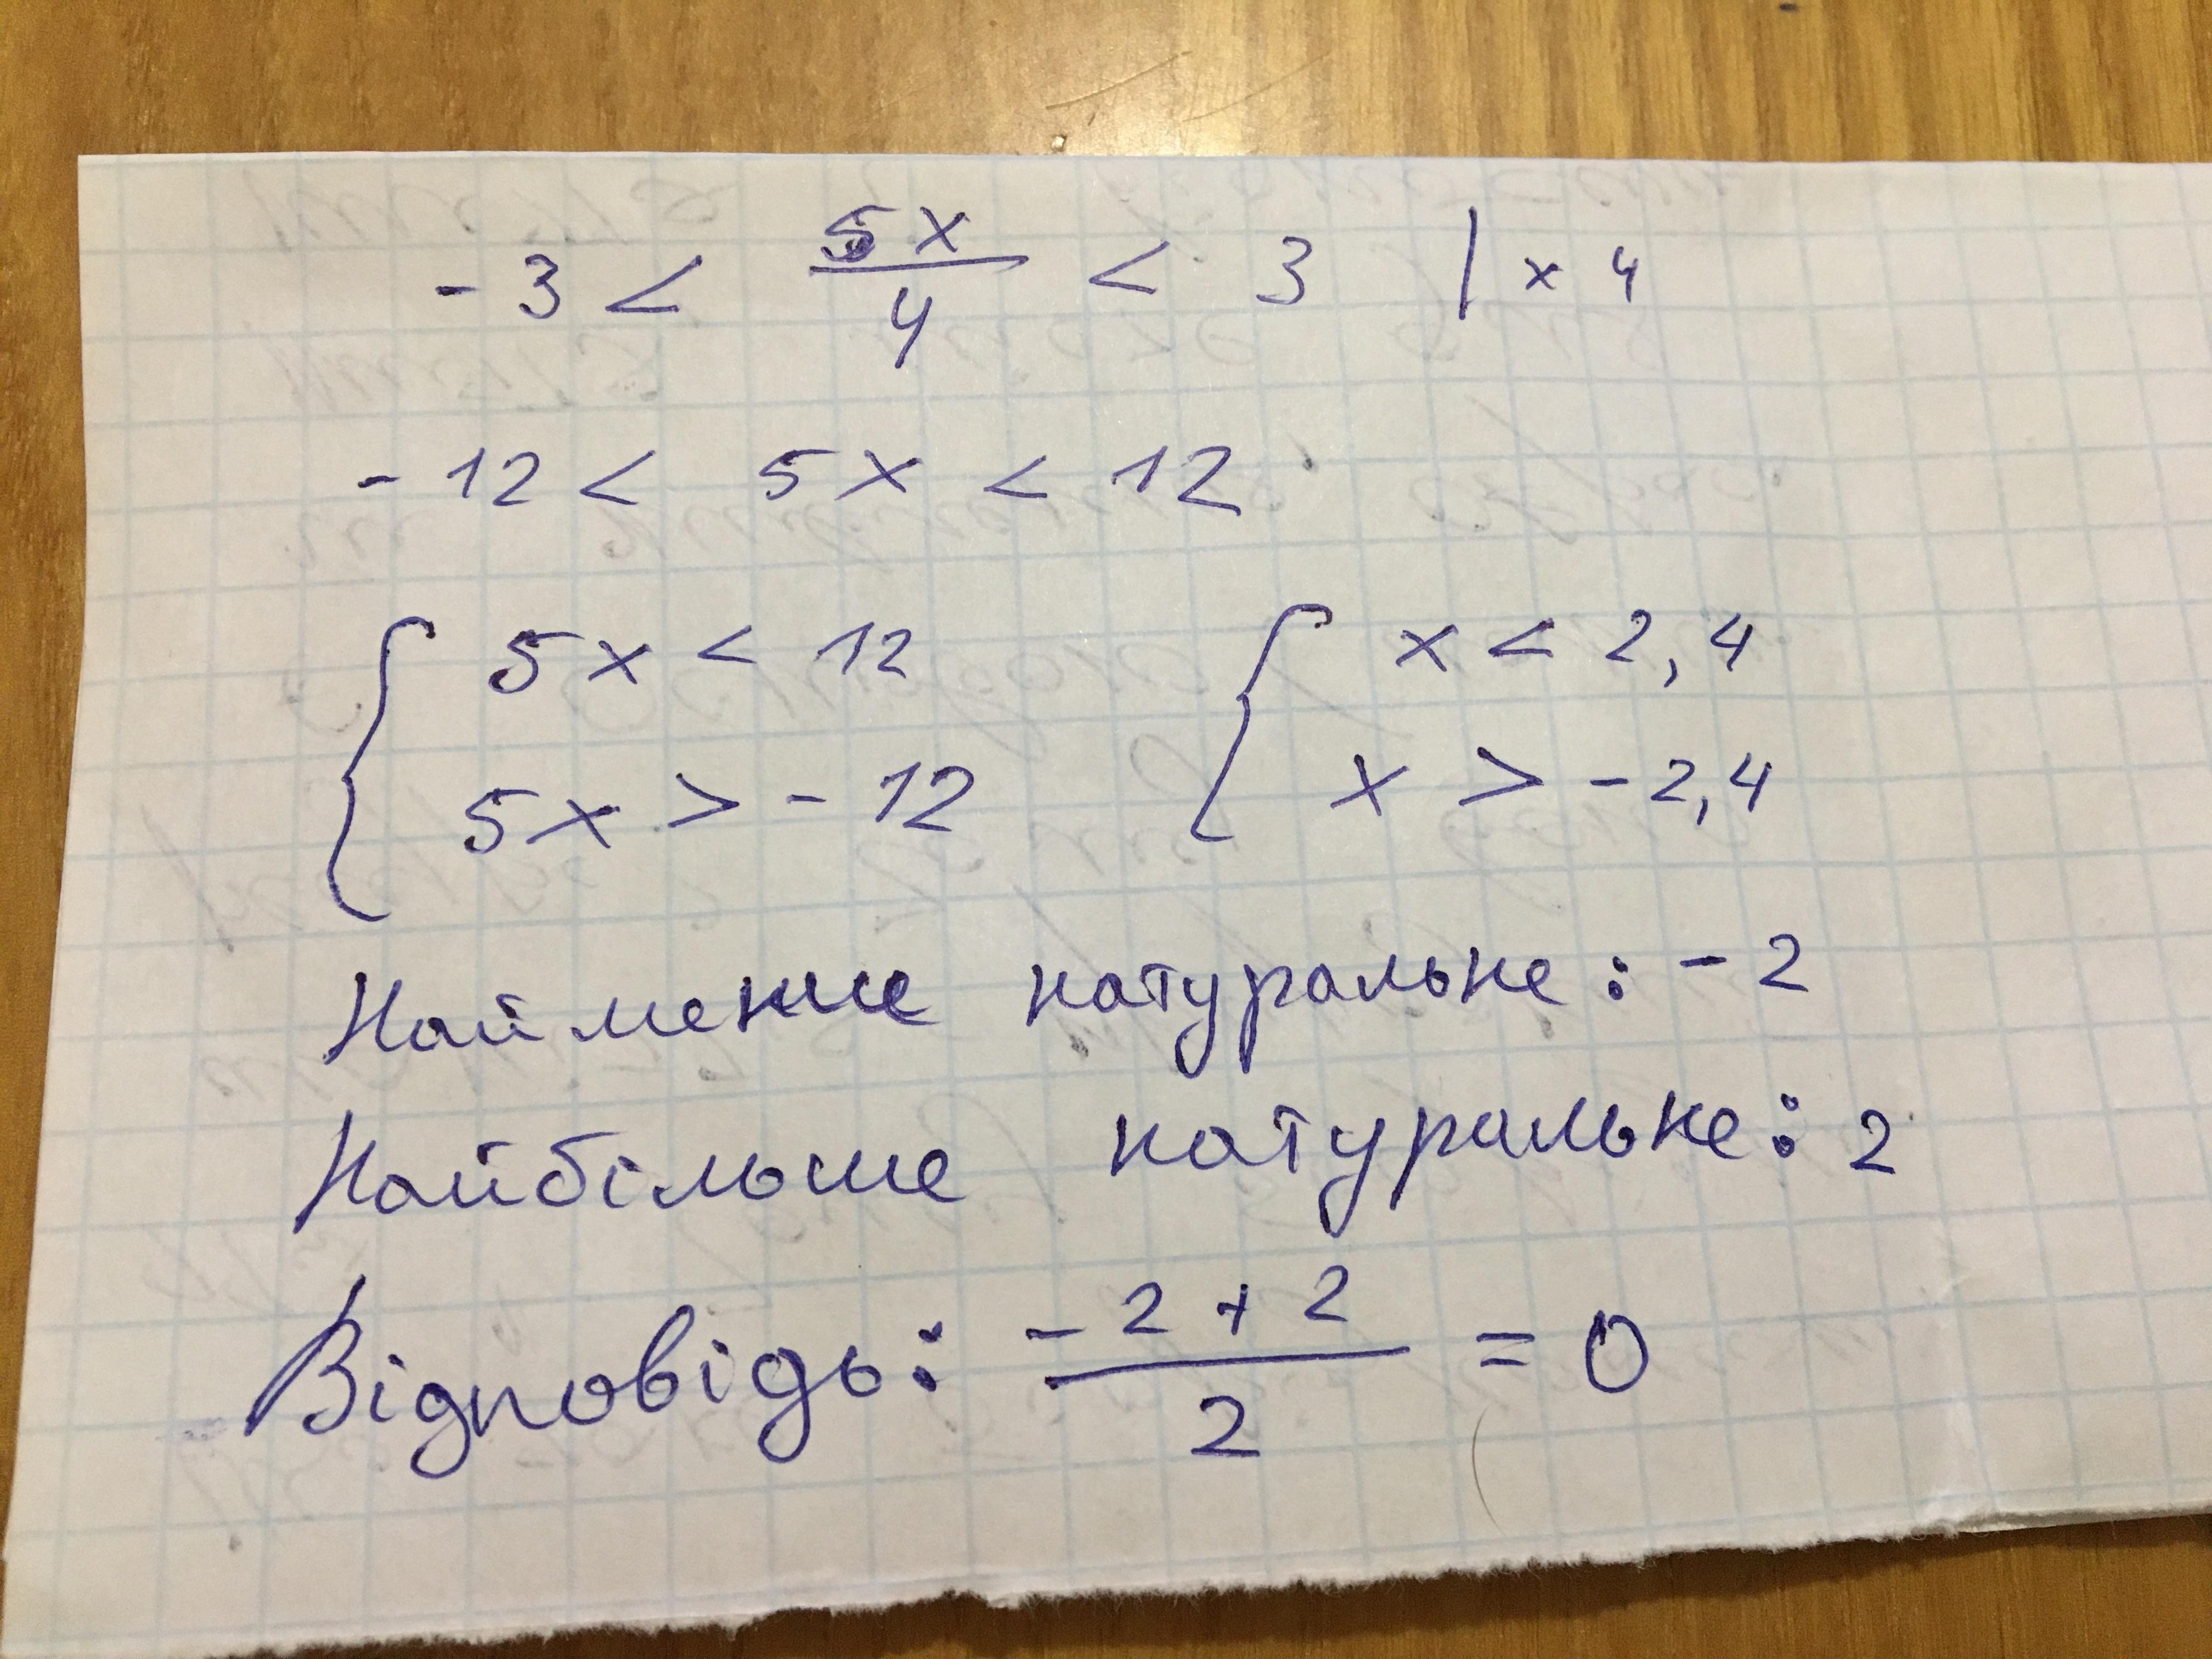 -3 < 5x/4 < 3 | × 4
-12 < 5x < 12
{ 5x < 12 { x < 2,4
5x > -12 x > -2,4
Найменше натуральне: -2
Найбільше натуральне: 2
Відповідь: (-2+2)/2 = 0